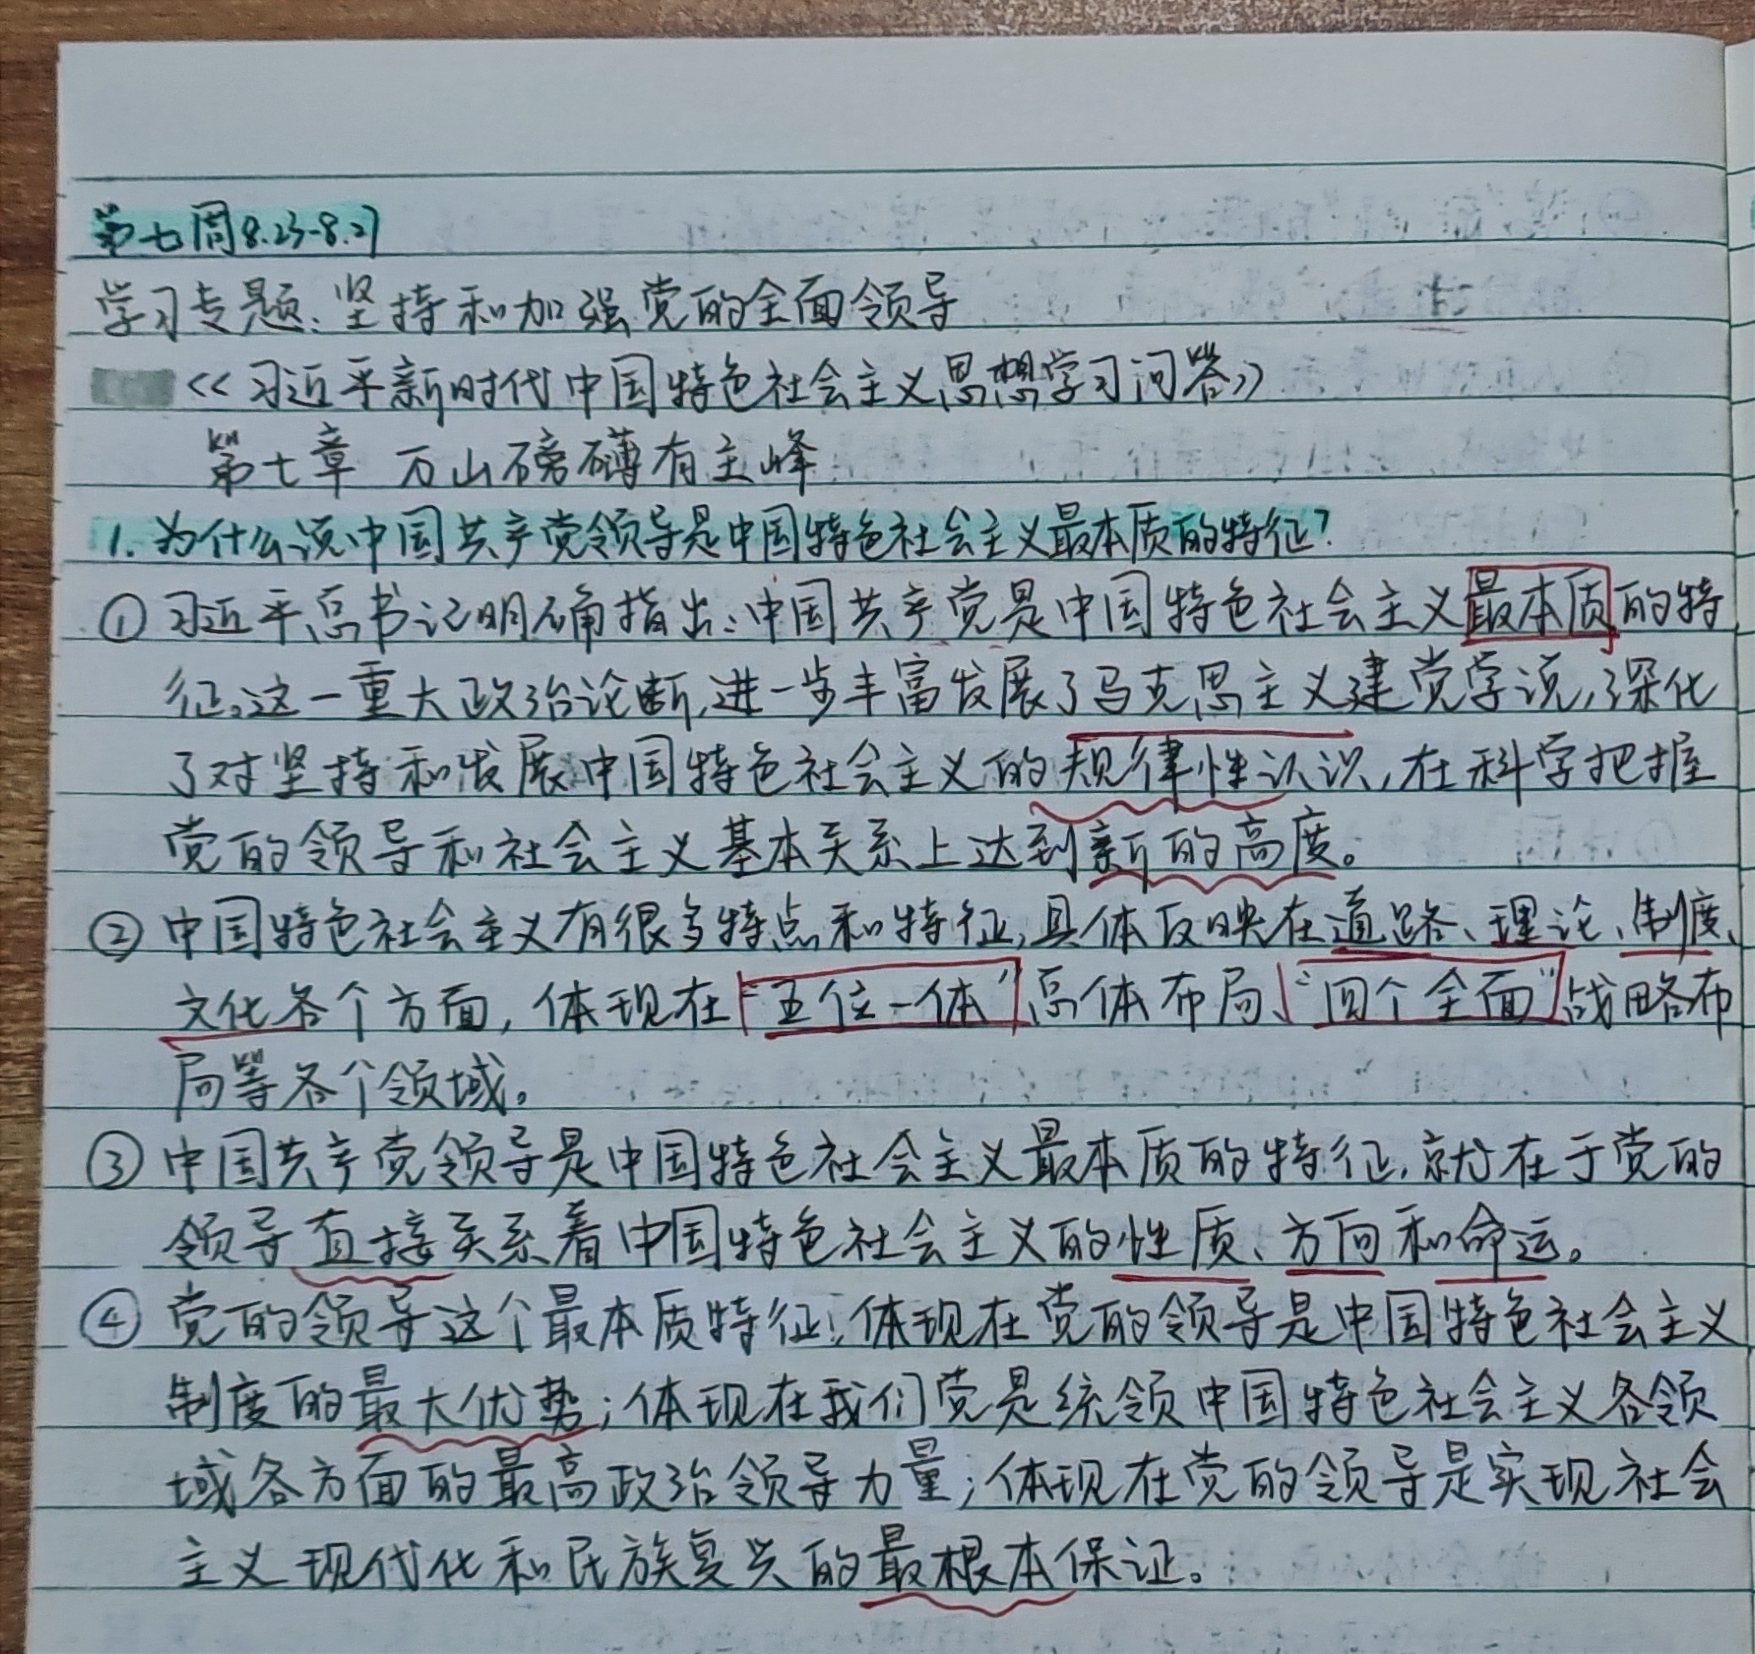 第七周8.23-8.27
学习专题:坚持和加强党的全面领导
<<习近平新时代中国特色社会主义思想学习问答>>
第七章 万山磅礴有主峰
1.为什么说中国共产党领导是中国特色社会主义最本质的特征?
①习近平总书记明确指出:中国共产党是中国特色社会主义最本质的特
征。这一重大政治论断,进一步丰富发展了马克思主义建党学说,深化
了对坚持和发展中国特色社会主义的规律性认识,在科学把握
党的领导和社会主义基本关系上达到新的高度。
②中国特色社会主义有很多特点和特征,具体反映在道路、理论、制度、
文化各个方面,体现在“五位一体”总体布局、“四个全面”战略布
局等各个领域。
③中国共产党领导是中国特色社会主义最本质的特征,就在于党的
领导直接关系着中国特色社会主义的性质、方向和命运。
④党的领导这个最本质特征:体现在党的领导是中国特色社会主义
制度的最大优势;体现在我们党是统领中国特色社会主义各领
域各方面的最高政治领导力量;体现在党的领导是实现社会
主义现代化和民族复兴的最根本保证。